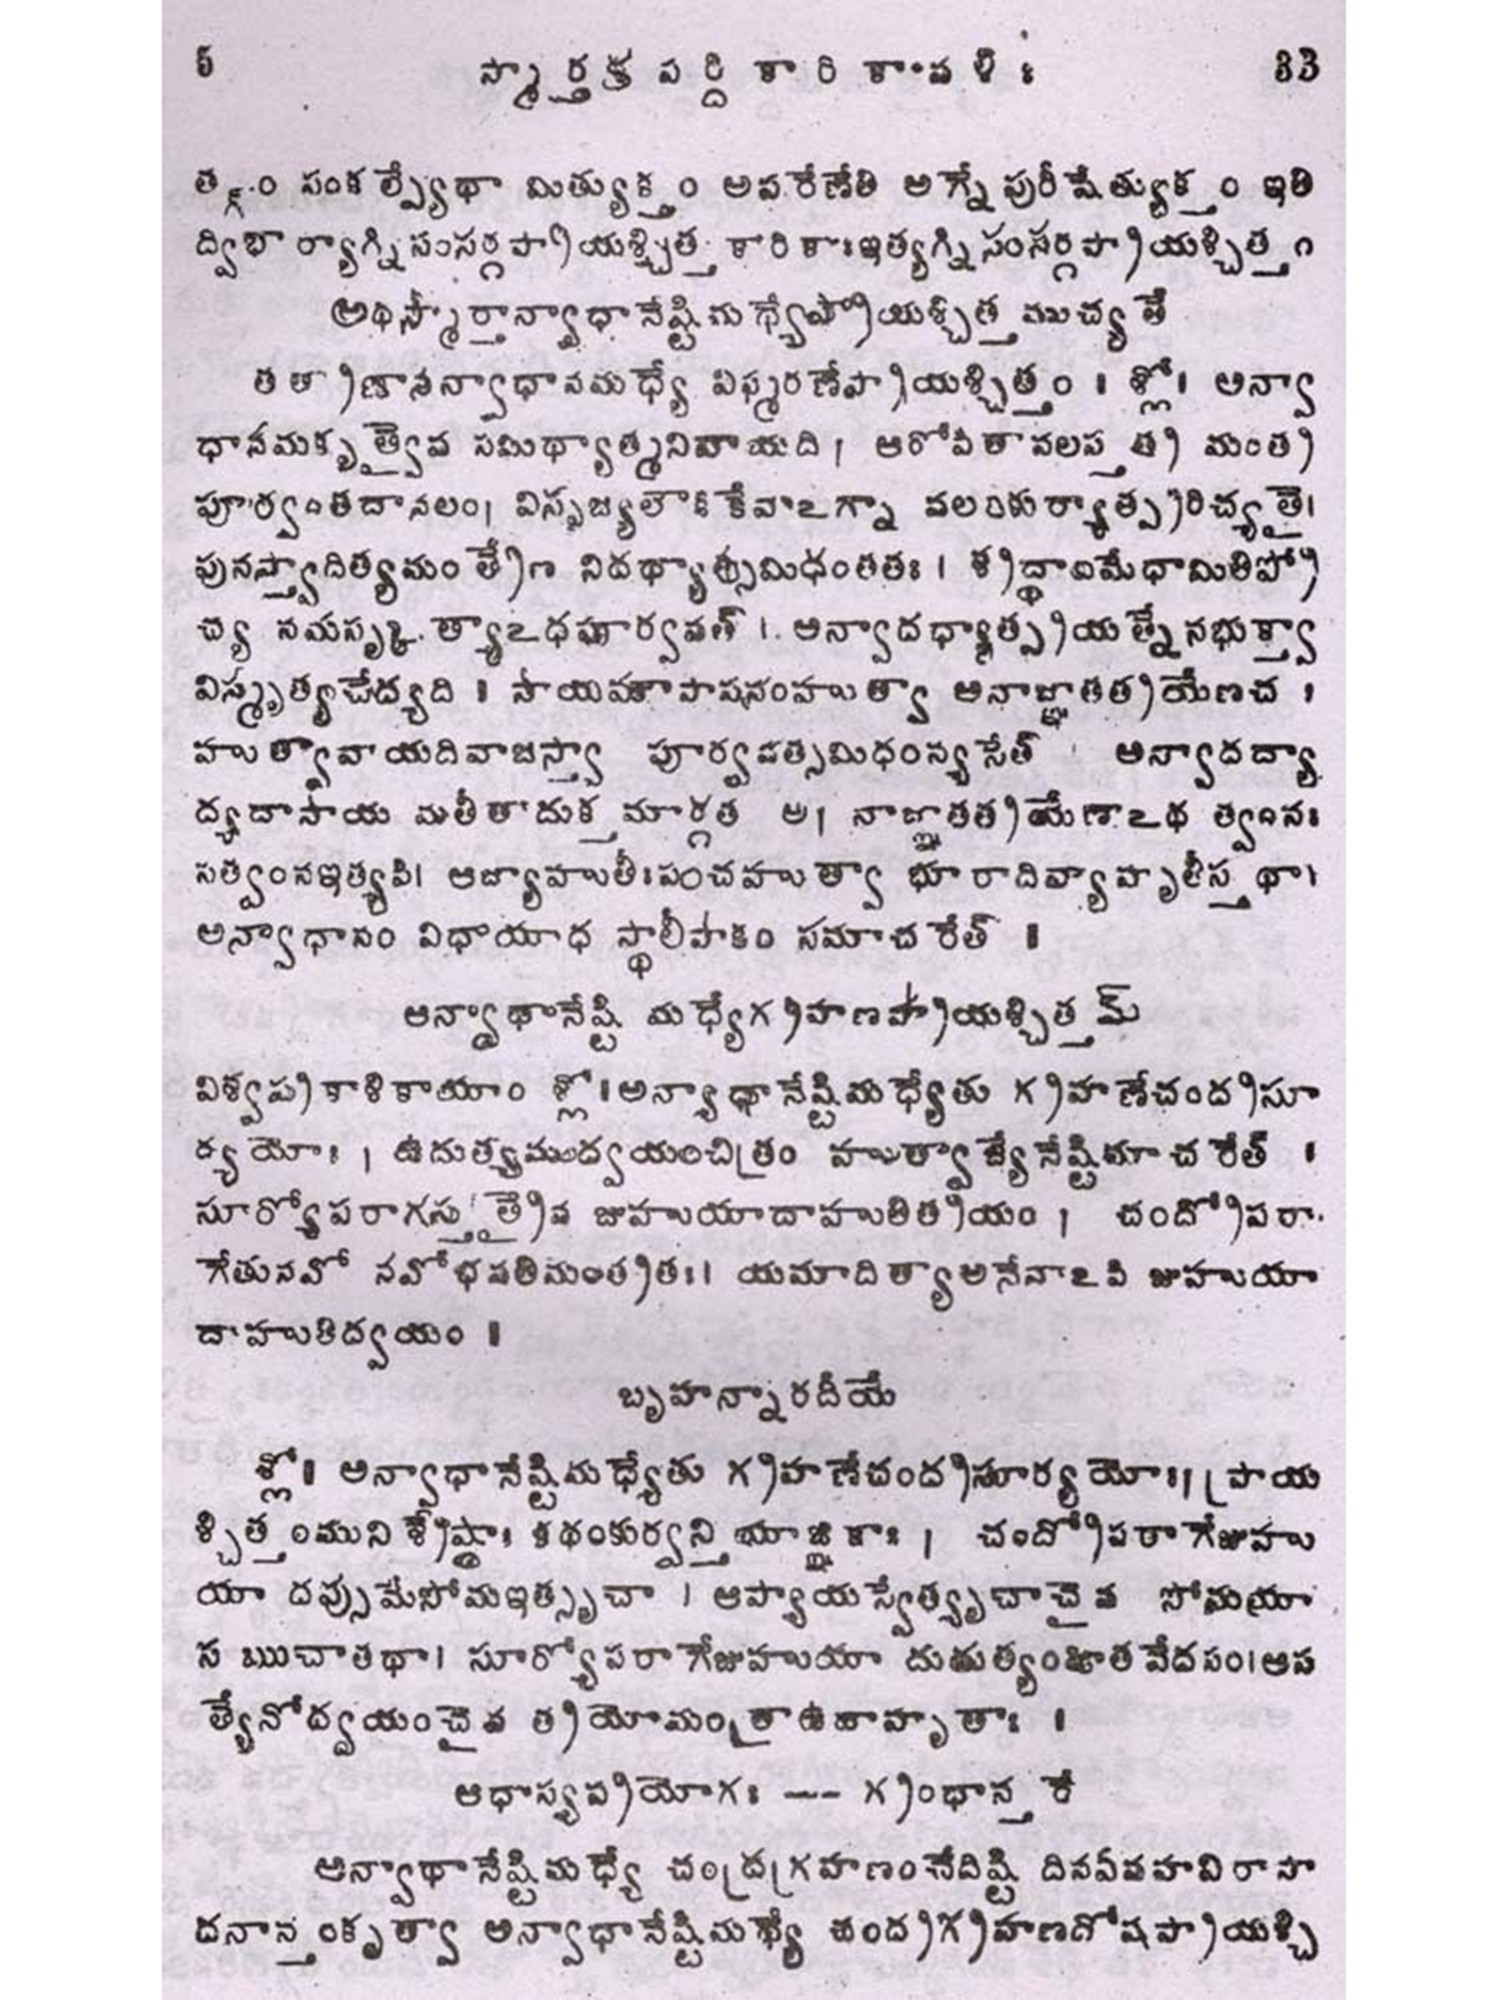 5 స్మార్తక పర్ది కారికావళిః 33
త్కం సంకల్ప్యేథా మిత్యుక్తం అపరేణేతి అగ్నే పురీషేత్యుక్తం ఇతి
ద్విభార్యాగ్నిసంసర్గప్రాయశ్చిత్త కారికాః ఇత్యగ్నిసంసర్గప్రాయశ్చిత్తం
అథస్మార్తాన్వాధానేష్టిమధ్యేప్రాయశ్చిత్తముచ్యతే
తత్రాణానన్వాధానమధ్యే విస్మరణేప్రాయశ్చిత్తం । శ్లో। అన్వా
ధానమకృత్వైవ సమిథ్యాత్మనివాయది। ఆరోపితావలస్తత్ర మంత్ర
పూర్వంతదానలం। విసృజ్యలౌకికేవాఽగ్నా వలంకుర్యాత్పరిచ్యుతై।
పునస్త్వాదిత్యమంత్రేణ నిదథ్యాత్సమిధంతతః । శ్రద్ధాఏమేధామితిప్రో
చ్య నమస్కృత్యాఽధపూర్వవత్ । అన్వాదధ్యాత్ప్రయత్నేనభుక్త్వా
విస్మృత్యచేద్యది । సాయమౌపాసనంహుత్వా అనాజ్ఞాతత్రయేణచ ।
హుత్వావాయదివాజస్త్వా పూర్వవత్సమిధంన్యసేత్ । అన్వాదద్యా
ద్యదాసాయ మతీతాదుక్తమార్గత అ। నాజ్ఞాతత్రయేణాఽథ త్వంనః
సత్వంనఇత్యపి। ఆజ్యాహుతీఃపంచహుత్వా భూరాదివ్యాహృతీస్తథా।
అన్వాధానం విధాయాధ స్థాలీపాకం సమాచరేత్ ॥
అన్వాథానేష్టి మధ్యేగ్రహణప్రాయశ్చిత్తమ్
విశ్వప్రకాశికాయాం శ్లో।అన్వాధానేష్టిమధ్యేతు గ్రహణేచంద్రసూ
ర్యయోః । ఉదుత్యముద్వయంచిత్రం హుత్వాజ్యేనేష్టిమాచరేత్ ।
సూర్యోపరాగస్తుత్రైవ జుహుయాదాహుతిత్రయం । చంద్రోపరా
గేతునవో నవోభవతిమంత్రతః। యమాదిత్యాఅనేనాఽపి జుహుయా
దాహుతిద్వయం ॥
బృహన్నారదీయే
శ్లో॥ అన్వాధానేష్టిమధ్యేతు గ్రహణేచంద్రసూర్యయోః। ప్రాయ
శ్చిత్తంముని శ్రేష్ఠాః కథంకుర్వన్తి యాజ్ఞికాః । చంద్రోపరాగేజుహు
యా దప్సుమేసోమఇత్యృచా । ఆప్యాయస్వేత్యృచాచైవ సోమయా
స ఋచాతథా। సూర్యోపరాగేజుహుయా దుదుత్యంజాతవేదసం।ఆస
త్యేనోద్వయంచైవ త్రయోమంత్రాఉదాహృతాః ।
ఆధాస్యప్రయోగః —— గ్రంధాన్తరే
అన్వాథానేష్టిమధ్యే చంద్రగ్రహణంచేదిష్టి దినఏవహవిరాసా
దనాన్తంకృత్వా అన్వాధానేష్టిమధ్యే చంద్రగ్రహణదోషప్రాయశ్చి